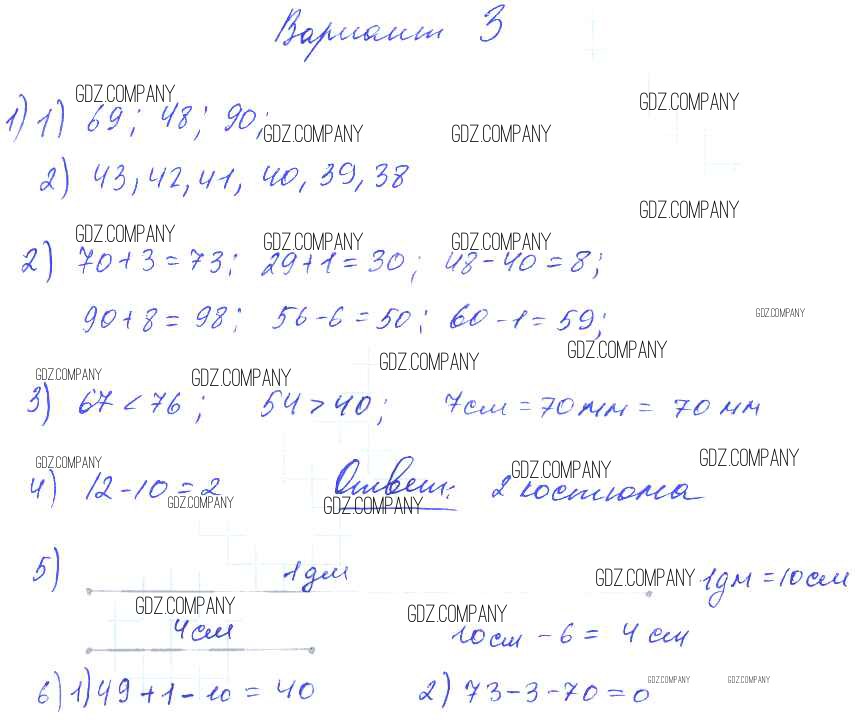 Вариант 3
GDZ.COMPANY
GDZ.COMPANY
1) 1) 69; 48; 90;
GDZ.COMPANY
GDZ.COMPANY
2) 43, 42, 41, 40, 39, 38
GDZ.COMPANY
GDZ.COMPANY
GDZ.COMPANY
GDZ.COMPANY
2) 70+3=73; 29+1=30; 48-40=8;
90+8=98; 56-6=50; 60-1=59;
GDZ.COMPANY
GDZ.COMPANY
GDZ.COMPANY
GDZ.COMPANY
GDZ.COMPANY
3) 67<76; 54>40; 7см=70мм=70мм
GDZ.COMPANY
GDZ.COMPANY
GDZ.COMPANY
4) 12-10=2 Ответ: 2 костюма
GDZ.COMPANY
GDZ.COMPANY
5) 1дм GDZ.COMPANY 1дм=10см
GDZ.COMPANY
GDZ.COMPANY
4см 10см-6=4см
GDZ.COMPANY
GDZ.COMPANY
6) 1) 49+1-10=40 2) 73-3-70=0